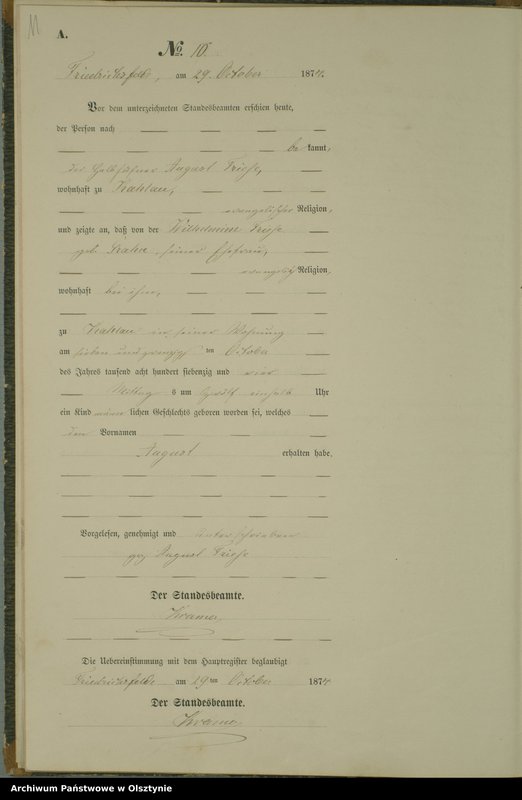 M
A.
No. 10.
Friedrichsfelde, am 29. October 1874.
Vor dem unterzeichneten Standesbeamten erschien heute,
der Person nach
be kannt,
der August Friese,
wohnhaft zu
evangelischer Religion,
und zeigte an, daß von der Wilhelmine Friese
geb. seiner Ehefrau,
evangelisch Religion,
wohnhaft bei ihm,
zu in seiner Wohnung
am sieben und zwanzigsten ten October
des Jahres tausend acht hundert siebenzig und vier
Mittag s um zwölf einhalb Uhr
ein Kind männ lichen Geschlechts geboren worden sei, welches
den Vornamen
August erhalten habe,
Vorgelesen, genehmigt und unterschrieben
gez August Friese
Der Standesbeamte.
Kramer
Die Uebereinstimmung mit dem Hauptregister beglaubigt
Friedrichsfelde am 29 ten October 1874
Der Standesbeamte.
Kramer
Archiwum Państwowe w Olsztynie